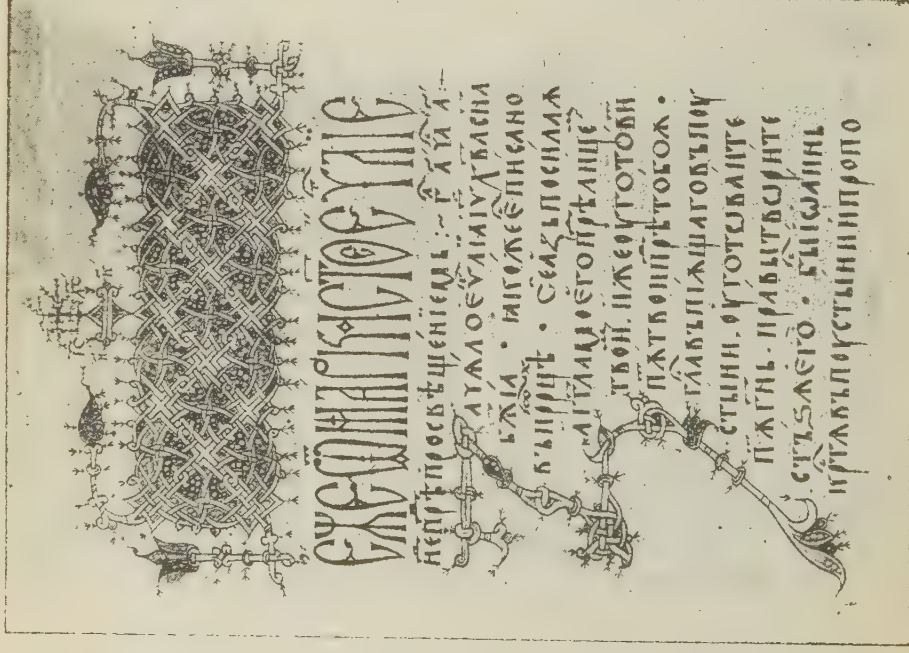 ЄЖЕ Ѿ МАРКА СТ҃ОЕ ЄѴЛ҃ІЕ
не҃ прⷣѣ просвѣщенїемь :~ гла а҃ :~
Зачѧло еѵⷢ҇лїа і҃у х҃ва сн҃а
бж҃їа · ꙗкоже е҃ писано
въ прⷪ҇рцѣ · Се азъ посилаѫ
агг҃ла моего прⷣѣ лице
твои. иже оуготови
пѫть твои прⷣѣ тобоѫ ·
гла въпїѫщаго въ поу
стыни. оуготѡваите
пѫть гн҃ь. правы твѡрите
стъѕѧ его · бы іѡаннь
кр҃тѧ въ поустыни и пропо